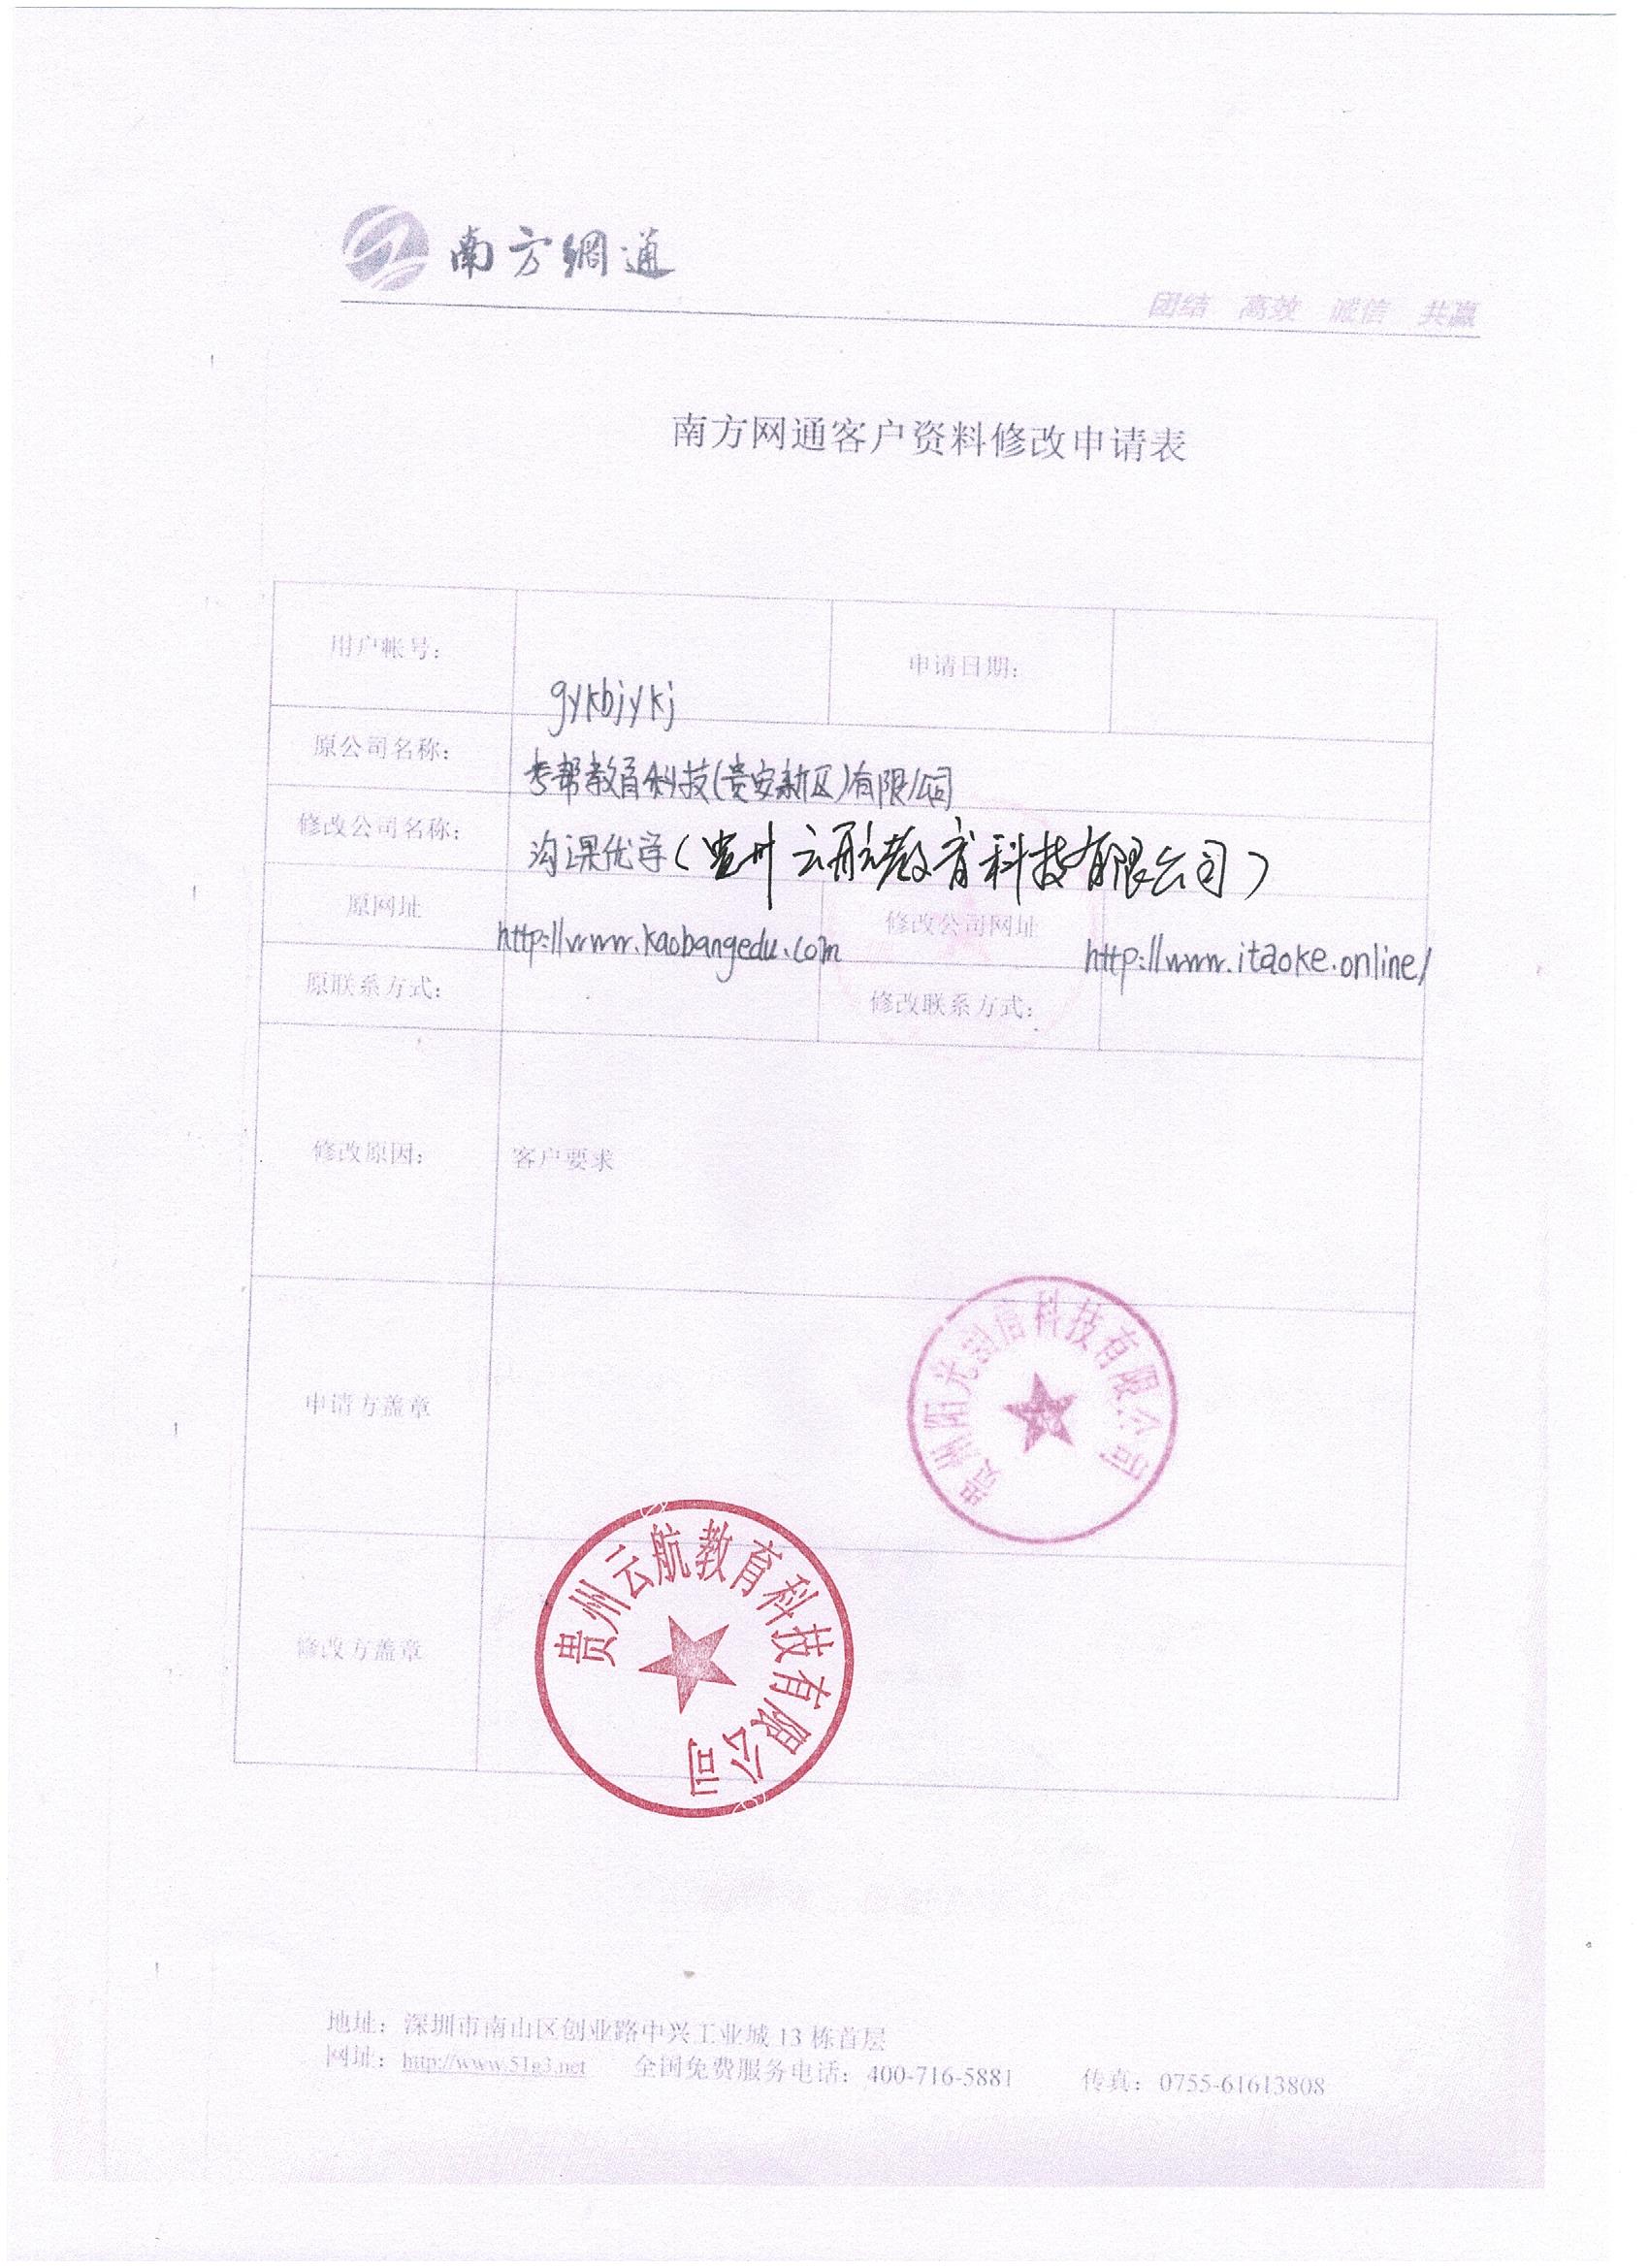 南方網通
团结 高效 诚信 共赢
南方网通客户资料修改申请表
用户帐号： gykbjykj 申请日期：
原公司名称： 考帮教育科技(贵安新区)有限公司
修改公司名称： 淘课优学（贵州云航教育科技有限公司）
原网址 http://www.kaobangedu.com 修改公司网址 http://www.itaoke.online/
原联系方式： 修改联系方式：
修改原因： 客户要求
申请方盖章
贵州阳光创信科技有限公司
修改方盖章
贵州云航教育科技有限公司
地址：深圳市南山区创业路中兴工业城 13 栋首层
网址：http://www.51g3.net 全国免费服务电话：400-716-5881 传真：0755-61613808